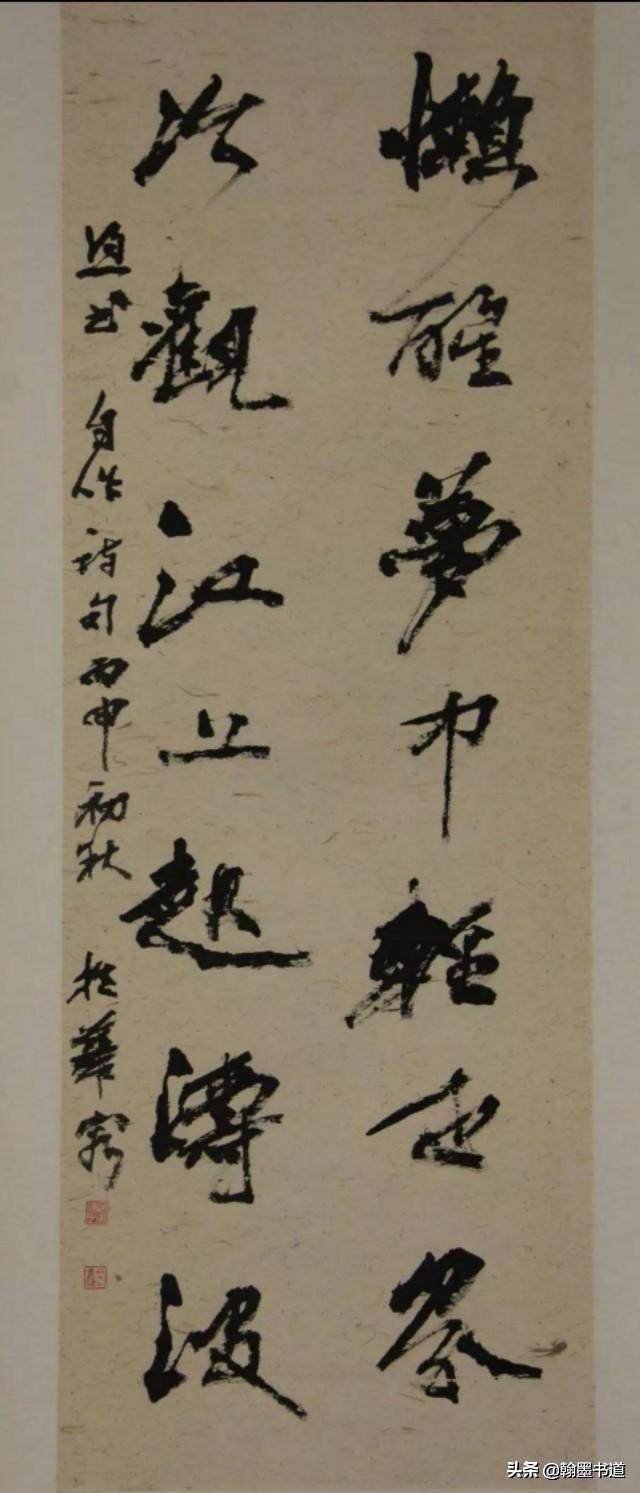 懶醒夢中輕世
冷觀江上起濤波
书 自作詩句丙申初秋 於華
头条 @翰墨书道